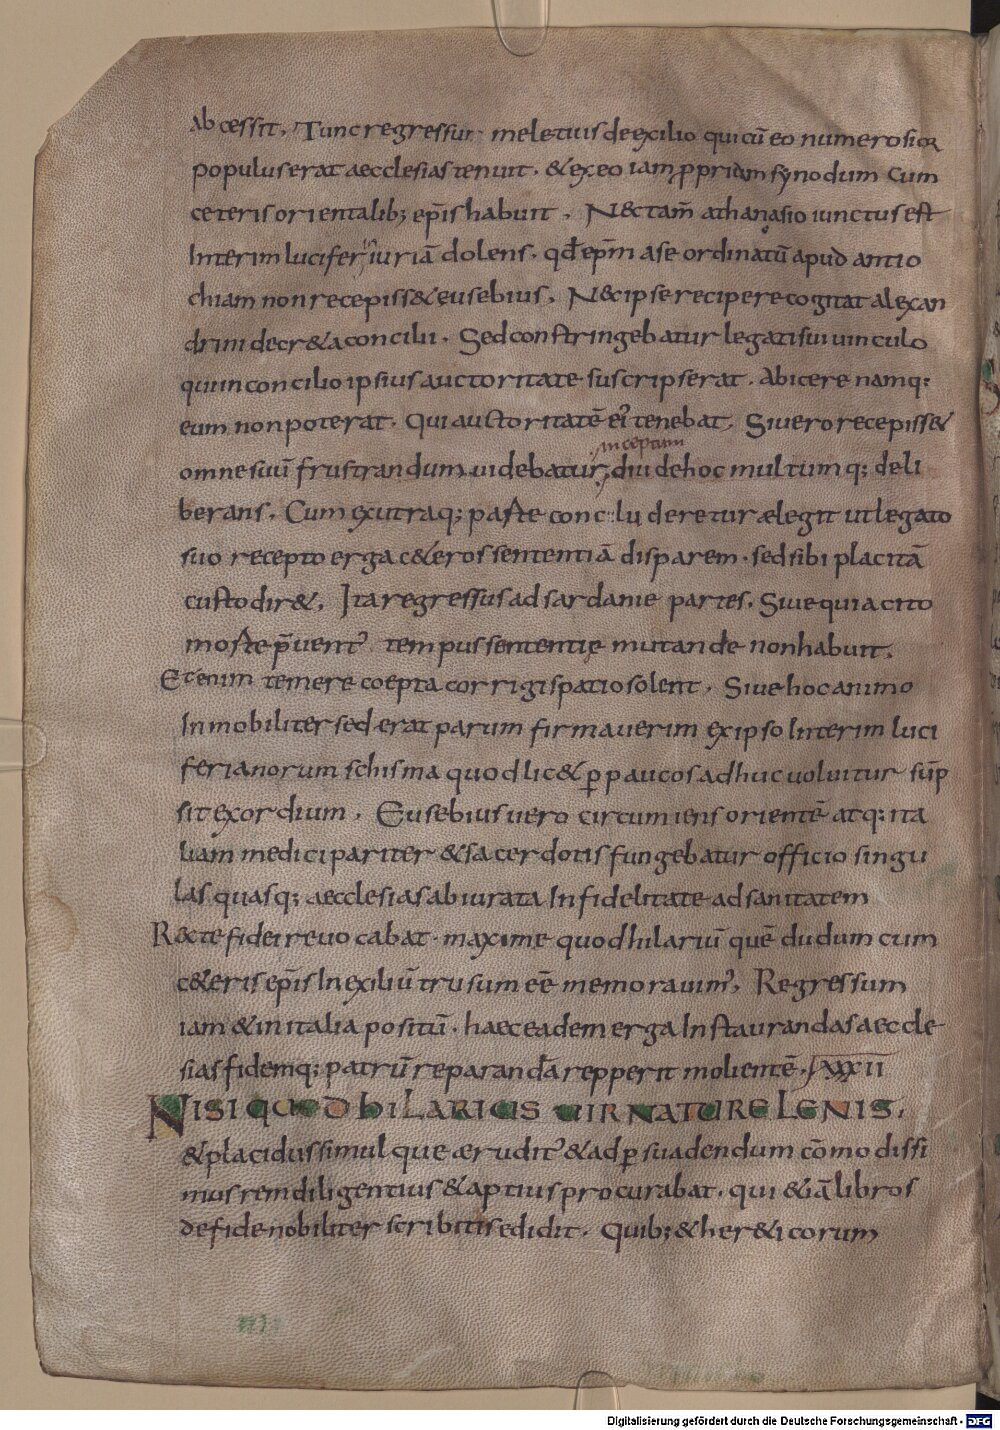 abcessit. Tunc regressus meletius deexilio quicū eo numerosior
populus erat aecclesias tenuit. & exeo iam ꝓpriam synodum Cum
ceteris orientalib; ep̄is habuit. N& tam̄ athanasio iunctus est
Interim lucifer iuriā dolens. qđ ep̄m ase ordinatū apud antio
chiam non recepiss& eusebius. N& ipse recipere cogitat alexan
drini decr&a concilii. Sed constringebatur legati sui uinculo
qui in concilio ipsius auctoritate suscripserat. Abicere namq:
eum non poterat. Qui auctoritatē ei' tenebat. Si uero recepiss&
inceptum
omne suū frustrandum uidebatur; diu dehoc multumq; deli
berans. Cum exutraq; parte concluderetur ælegit ut legato
suo recepto erga c&eros sententiā disparem. sed sibi placitā
custodir&. Ita regressus ad sardanie partes. Siue quia cito
morte p̄uent' tempus sententię mutande non habuit.
Etenim temere coepta corrigi spatio solent. Siue hoc animo
Inmobiliter sederat parum firmauerim exipso Interim luci
ferianorum schisma quod lic& ꝑ paucos adhuc uoluitur sūp
sit exordium. Eusebius uero circumiens orientē atq; ita
liam medici pariter & sacerdotis fungebatur officio singu
las quasq; aecclesias abiurata Infidelitate ad sanitatem
R&cte fidei reuocabat. maxime quod hilariū quē dudum cum
c&eris ep̄is In exiliū trusum eē memorauim'. Regressum
iam & in italia positū. haec eadem erga Instaurandas aeccle
sias fidemq; patrū reparandā repperit molientē. XXXII
NISI QUOD HILARIUS UIR NATURE LENIS.
& placidus simul que ærudit' & ad ꝑsuadendum cōmodissi
mus rem diligentius & aptius procurabat. qui &iā libros
de fide nobiliter scribitis edidit. Quib; & her&icorum
Digitalisierung gefördert durch die Deutsche Forschungsgemeinschaft - DFG